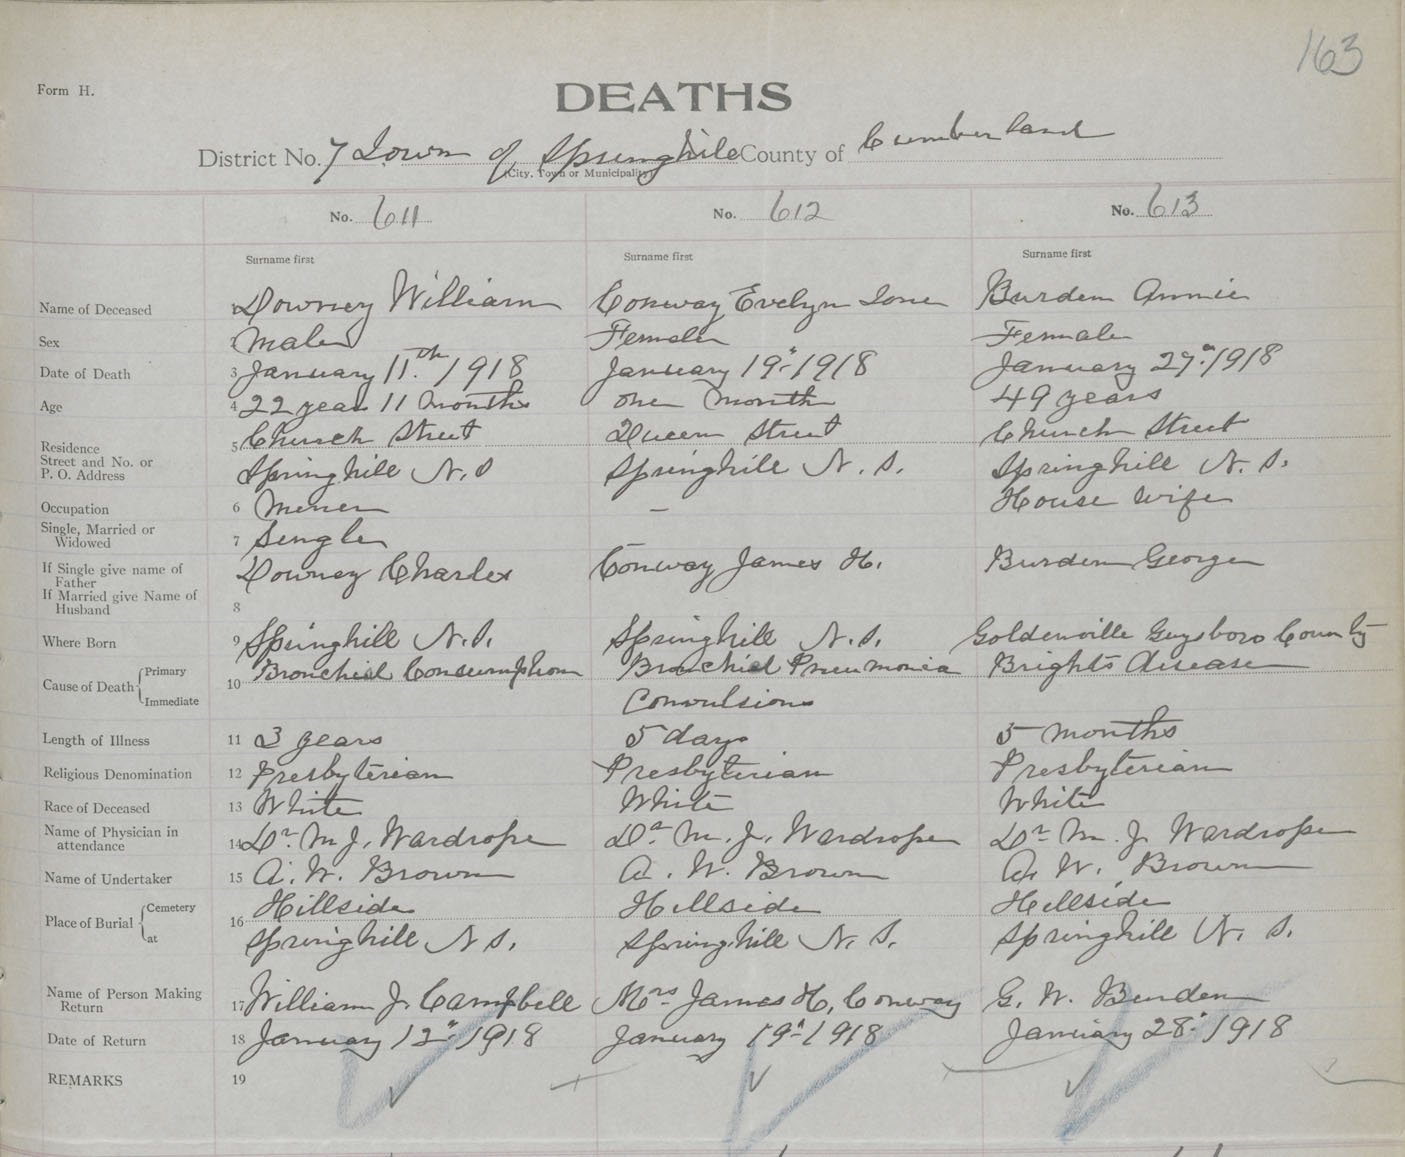 163
Form H.
DEATHS
District No. 7 Town of Springhill County of Cumberland
(City, Town or Municipality)
No. 611 No. 612 No. 613
Surname first Surname first Surname first
Name of Deceased Downey William Conway Evelyn Ione Burden Annie
Sex Male Female Female
Date of Death 3 January 11.th 1918 January 19" 1918 January 27" 1918
Age 4 22 years 11 months one month 49 years
Residence 5 Church Street Queen Street Church Street
Street and No. or
P. O. Address Springhill N.S Springhill N.S. Springhill N.S.
Occupation 6 Miner – House wife
Single, Married or
Widowed 7 Single
If Single give name of
Father Downey Charles Conway James H. Burden George
If Married give Name of
Husband 8
Where Born 9 Springhill N.S. Springhill N.S. Goldenville Guysboro County
Cause of Death Primary 10 Bronchial Consumption Bronchial Pneumonia Brights disease
Immediate Convulsions
Length of Illness 11 3 years 5 days 5 months
Religious Denomination 12 Presbyterian Presbyterian Presbyterian
Race of Deceased 13 White White White
Name of Physician in
attendance 14 Dr M J. Wardrope Dr. M. J. Wardrope Dr M. J Wardrope
Name of Undertaker 15 A. W. Brown A. W. Brown A. W. Brown
Place of Burial Cemetery 16 Hillside Hillside Hillside
at Springhill N S. Springhill N. S. Springhill N. S.
Name of Person Making
Return 17 William J. Campbell Mrs James H. Conway G. W. Burden
Date of Return 18 January 12" 1918 January 19" 1918 January 28" 1918
REMARKS 19